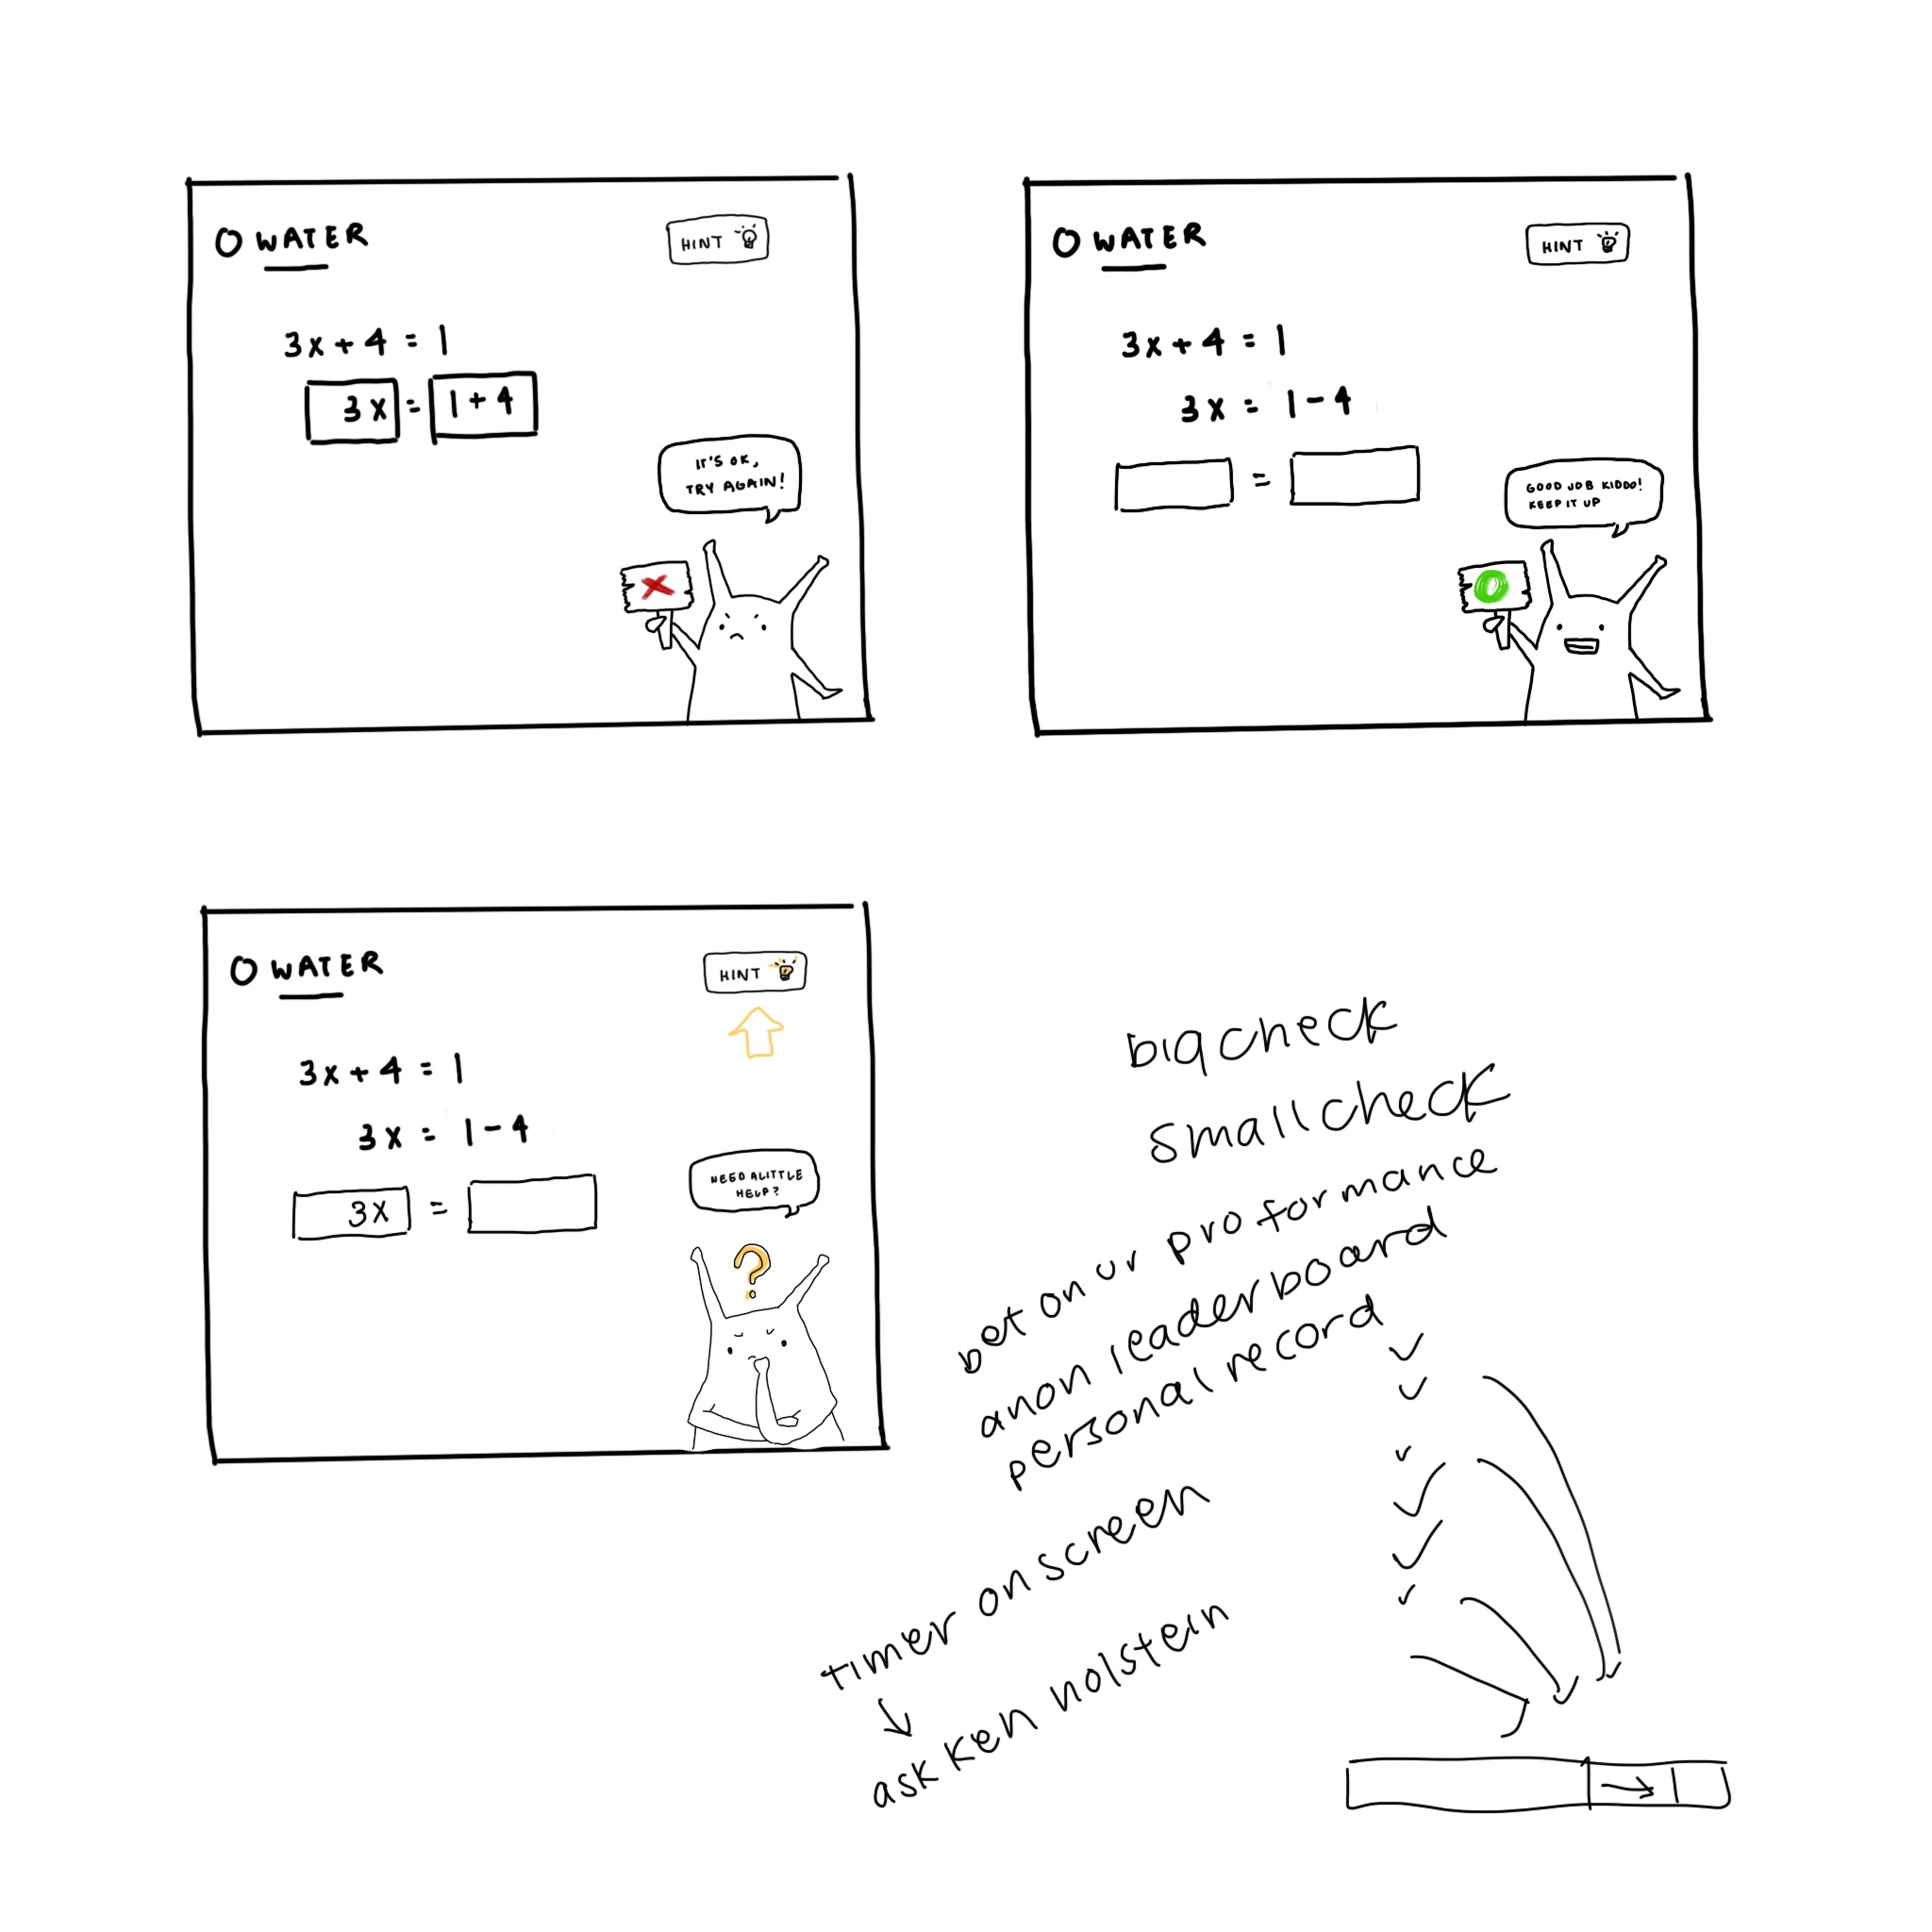 O WATER
HINT
3x + 4 = 1
3x = 1 + 4
IT'S OK,
TRY AGAIN!
O WATER
HINT
3x + 4 = 1
3x = 1 - 4
=
GOOD JOB KIDDO!
KEEP IT UP
O WATER
HINT
3x + 4 = 1
3x = 1 - 4
3x =
NEED A LITTLE
HELP?
?
big check
small check
bet on ur proformance
anon leaderboard
personal record
timer on screen
ask ken holstein